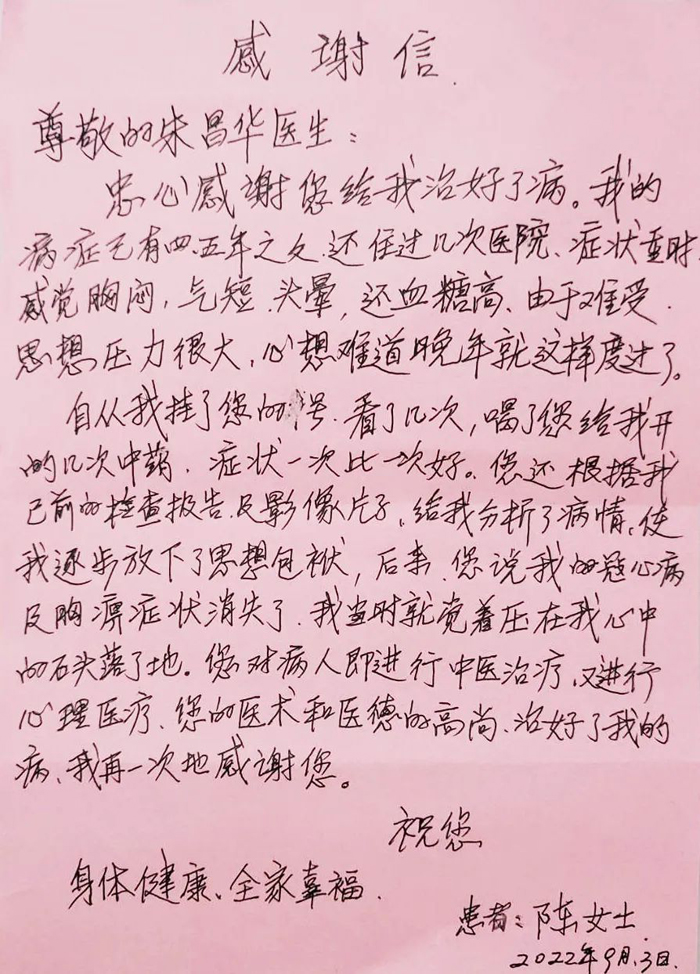 感谢信
尊敬的宋昌华医生：
忠心感谢您给我治好了病。我的
病症已有四、五年之久、还住过几次医院、症状重时、
感觉胸闷，气短、头晕，还血糖高、由于难受、
思想压力很大，心想难道晚年就这样度过了。
自从我挂了您的号、看了几次，喝了您给我开
的几次中药、症状一次比一次好。您还根据我
已前的检查报告及影像片子、给我分析了病情、使
我逐步放下了思想包袱，后来、您说我的冠心病
及胸痹症状消失了、我当时就觉着压在我心中
的石头落了地。您对病人即进行中医治疗、又进行
心理医疗、您的医术和医德的高尚、治好了我的
病、我再一次地感谢您。
祝您
身体健康、全家幸福、
患者：陈女士
2022年9月3日、